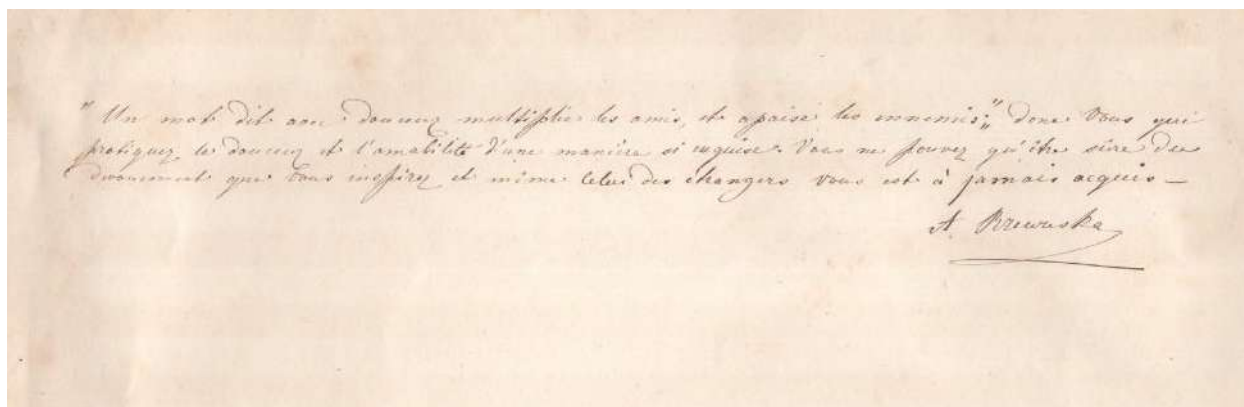 "Un mot dit avec douceur multiplie les amis, et apaise les ennemis;" donc Vous qui
pratiquez la douceur et l'amabilité d'une manière si exquise. Vous ne pouvez qu'être sûre du
dévouement que Vous inspirez et même celui des étrangers Vous est à jamais acquis —
A. Rzewuska